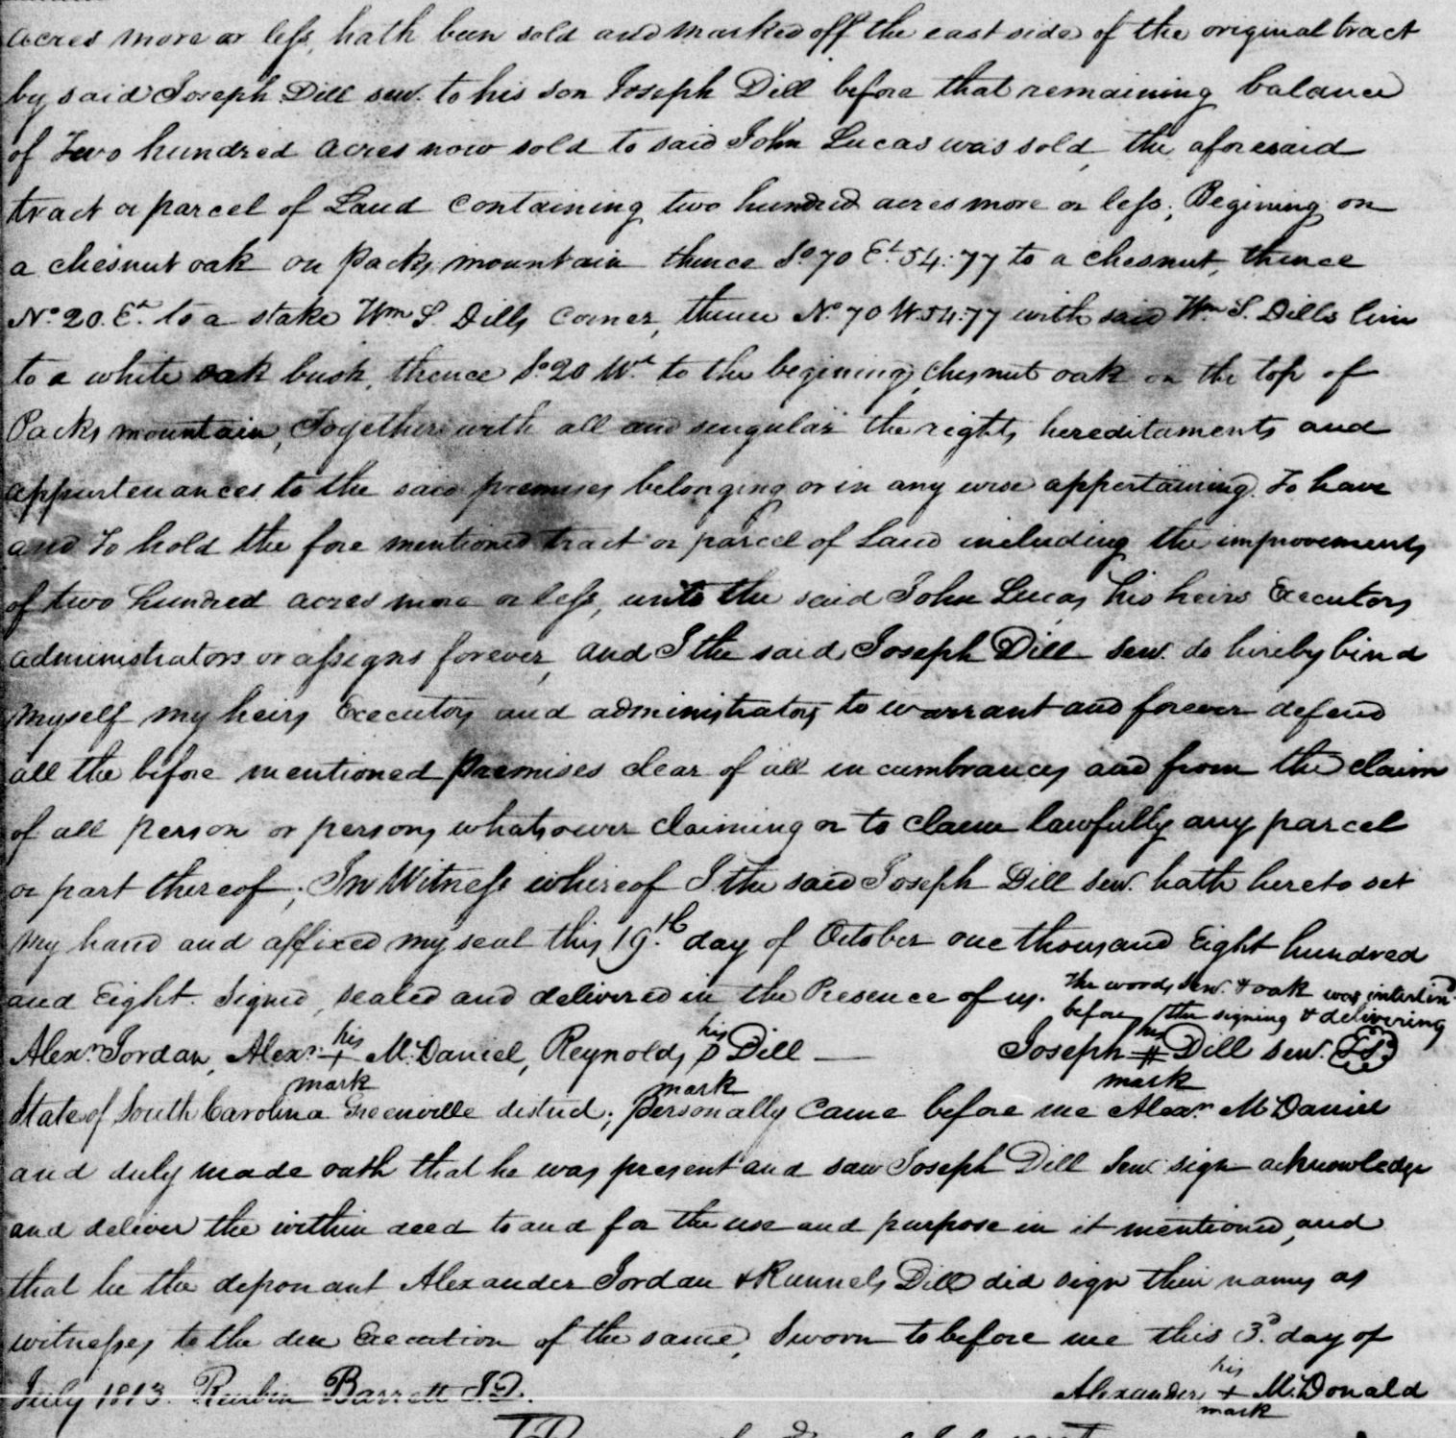 acres more or less, hath been sold and marked off the east side of the original tract
by said Joseph Dill sen. to his son Joseph Dill before that remaining balance
of Two hundred acres now sold to said John Lucas was sold, the aforesaid
tract or parcel of Land containing two hundred acres more or less; Begining on
a chesnut oak on Packs mountain thence So. 70 Et. 54:77 to a chesnut, thence
No. 20. Et. to a stake Wm S. Dills corner, thence No. 70 W. 54:77 with said Wm. S. Dills line
to a white oak bush, thence So. 20 Wt. to the begining, chesnut oak on the top of
Packs mountain, Together with all and singular the rights hereditaments and
appurtenances to the said premises belonging or in any wise appertaining. To have
and To hold the fore mentioned tract or parcel of Land including the improvements
of two hundred acres more or less, unto the said John Lucas his heirs Executors
administrators or assigns forever, and I the said Joseph Dill sen. do hereby bind
myself my heirs Executors and administrators to warrant and forever defend
all the before mentioned premises clear of all incumbrances and from the claim
of all person or persons whatsower claiming or to claim lawfully any parcel
or part thereof; In Witness whereof I the said Joseph Dill sen. hath hereto set
my hand and affixed my seal this 19.th day of October one thousand Eight hundred
and Eight. Signed, sealed and delivered in the Presence of us. The words sen. & oak was interlin'd
before the signing & delivering
Alexr. Jordan, Alexr. his + mark McDaniel, Reynolds his D mark Dill — Joseph his # mark Dill sen. (LS)
State of South Carolina Greenville district; personally came before me Alexr. McDaniel
and duly made oath that he was present and saw Joseph Dill Sen. sign acknowledge
and deliver the within deed to and for the use and purpose in it mentioned, and
that he the deponant Alexander Jordan & Runnels Dill did sign their names as
witnesses to the due Execution of the same, Sworn to before me this 3d. day of
July 1813. Reubin Barrett J.Q. Alexander his + mark McDonald